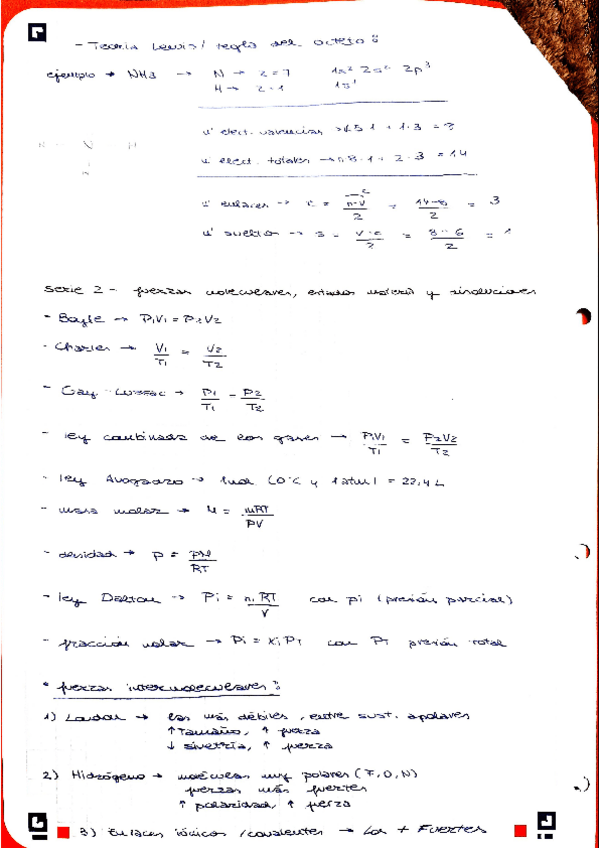 - Teoría Lewis / regla del octeto:
ejemplo → NH3 → N → z=7 1s² 2s² 2p³
H → z=1 1s¹
nº elect. valencias → 5·1 + 1·3 = 8
nº elect. totales → 8·1 + 2·3 = 14
nº enlaces → e = n-v / 2 = 14-8 / 2 = 3
nº sueltos → s = v-e / 2 = 8-6 / 2 = 1
serie 2 - fuerzas moleculares, estados materia y disoluciones
- Boyle → P1V1 = P2V2
- Charles → V1/T1 = V2/T2
- Gay-Lussac → P1/T1 = P2/T2
- ley combinada de los gases → P1V1/T1 = P2V2/T2
- ley Avogadro → 1mol (0ºC y 1atm) = 22,4 L
- masa molar → M = mRT/PV
- densidad → ρ = PM/RT
- ley Dalton → Pi = ni RT/V con pi (presión parcial)
- fracción molar → Pi = Xi PT con PT presión total
• fuerzas intermoleculares:
1) London → las más débiles, entre sust. apolares
↑ Tamaño, ↑ fuerza
↓ simetría, ↑ fuerza
2) Hidrógeno → moléculas muy polares (F, O, N)
fuerzas más fuertes
↑ polaridad, ↑ fuerza
3) Enlaces iónicos / covalentes → Los + Fuertes